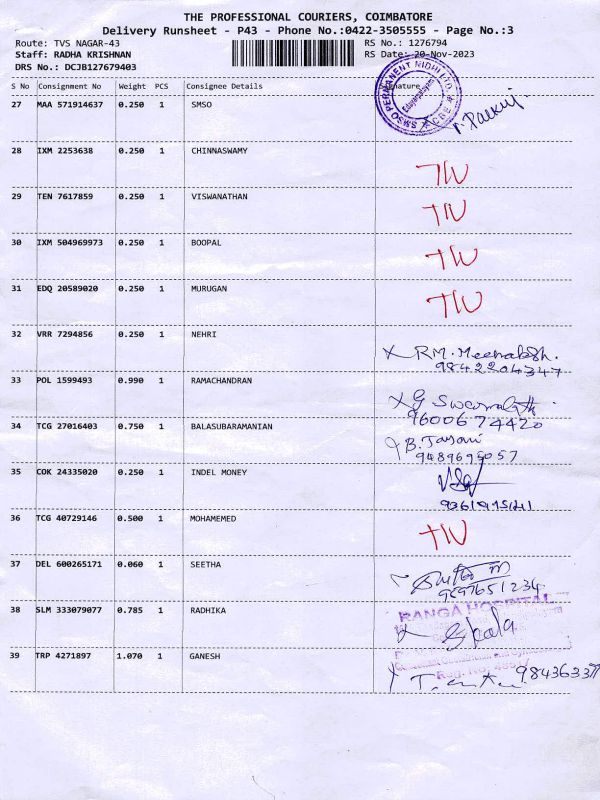 THE PROFESSIONAL COURIERS, COIMBATORE
Delivery Runsheet - P43 - Phone No.:0422-3505555 - Page No.:3
Route: TVS NAGAR-43 RS No.: 1276794
Staff: RADHA KRISHNAN RS Date: 20-Nov-2023
DRS No.: DCJB127679403
S No Consignment No Weight PCS Consignee Details Signature
SMSO PERMANENT NIDHI LTD
CBE
27 MAA 571914637 0.250 1 SMSO
28 IXM 2253638 0.250 1 CHINNASWAMY
29 TEN 7617859 0.250 1 VISWANATHAN
30 IXM 504969973 0.250 1 BOOPAL
31 EDQ 20589020 0.250 1 MURUGAN
32 VRR 7294856 0.250 1 NEHRI
9842204347
33 POL 1599493 0.990 1 RAMACHANDRAN
9600674420
34 TCG 27016403 0.750 1 BALASUBARAMANIAN
B. Jayani
35 COK 24335020 0.250 1 INDEL MONEY
36 TCG 40729146 0.500 1 MOHAMEMED
37 DEL 600265171 0.060 1 SEETHA
9597651234
RANGA HOSPITAL
38 SLM 333079077 0.785 1 RADHIKA
39 TRP 4271897 1.070 1 GANESH